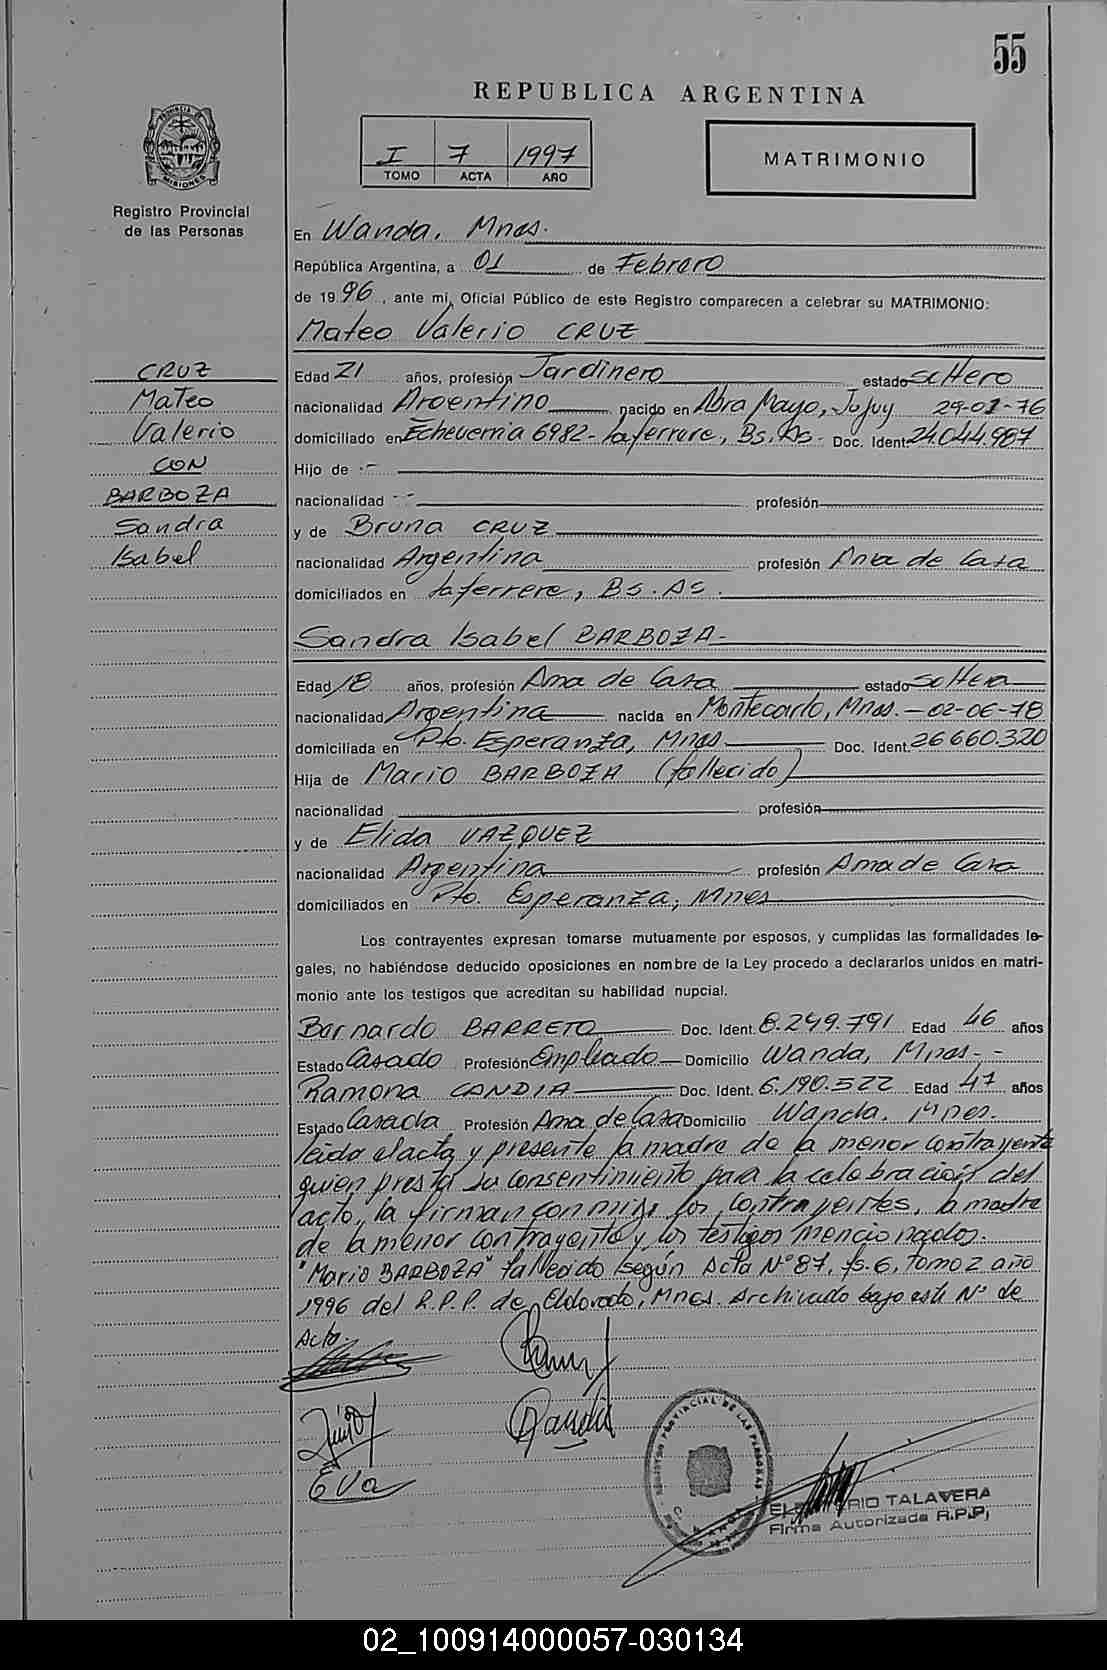 55
REPUBLICA ARGENTINA
I 7 1997
TOMO ACTA AÑO
MATRIMONIO
PROVINCIA DE MISIONES
Registro Provincial
de las Personas
En Wanda, Mnes.
República Argentina, a 01 de Febrero
de 1996, ante mi, Oficial Público de este Registro comparecen a celebrar su MATRIMONIO:
Mateo Valerio CRUZ
CRUZ
Mateo
Valerio
CON
BARBOZA
Sandra
Isabel
Edad 21 años, profesión Jardinero estado soltero
nacionalidad Argentino nacido en Abra Mayo, Jujuy 29-01-76
domiciliado en Echeverria 6982- Laferrere, Bs. As- Doc. Ident. 24.044.987
Hijo de --
nacionalidad -- profesión
y de Bruna CRUZ
nacionalidad Argentina profesión Ama de Casa
domiciliados en Laferrere, Bs. As.
Sandra Isabel BARBOZA-
Edad 18 años, profesión Ama de Casa estado soltera
nacionalidad Argentina nacida en Montecarlo, Mnes.-02-06-78
domiciliada en Pto. Esperanza, Mnes Doc. Ident. 26660.320
Hija de Mario BARBOZA (fallecido)
nacionalidad profesión
y de Elida VAZQUEZ
nacionalidad Argentina profesión Ama de Casa
domiciliados en Pto. Esperanza, Mnes
Los contrayentes expresan tomarse mutuamente por esposos, y cumplidas las formalidades le-
gales, no habiéndose deducido oposiciones en nombre de la Ley procedo a declararlos unidos en matri-
monio ante los testigos que acreditan su habilidad nupcial.
Bernardo BARRETO Doc. Ident. 8.249.791 Edad 46 años
Estado Casado Profesión Empleado Domicilio Wanda, Mnes--
Ramona CANDIA Doc. Ident. 6.190.522 Edad 47 años
Estado Casada Profesión Ama de Casa Domicilio Wanda. Mnes.
leida el acta y presente la madre de la menor contrayente
quien presta su consentimiento para la celebración del
acto, la firman conmigo los contrayentes, la madre
de la menor contrayente y los testigos mencionados.
"Mario BARBOZA" fallecido según Acta Nº 87, fs. 6, tomo 2 año
1996 del R.P.P. de Eldorado, Mnes. Archivado bajo este Nº de
Acta.
Eva
REGISTRO PROVINCIAL DE LAS PERSONAS
TALAVERA
Firma Autorizada R.P.P.
02_100914000057-030134